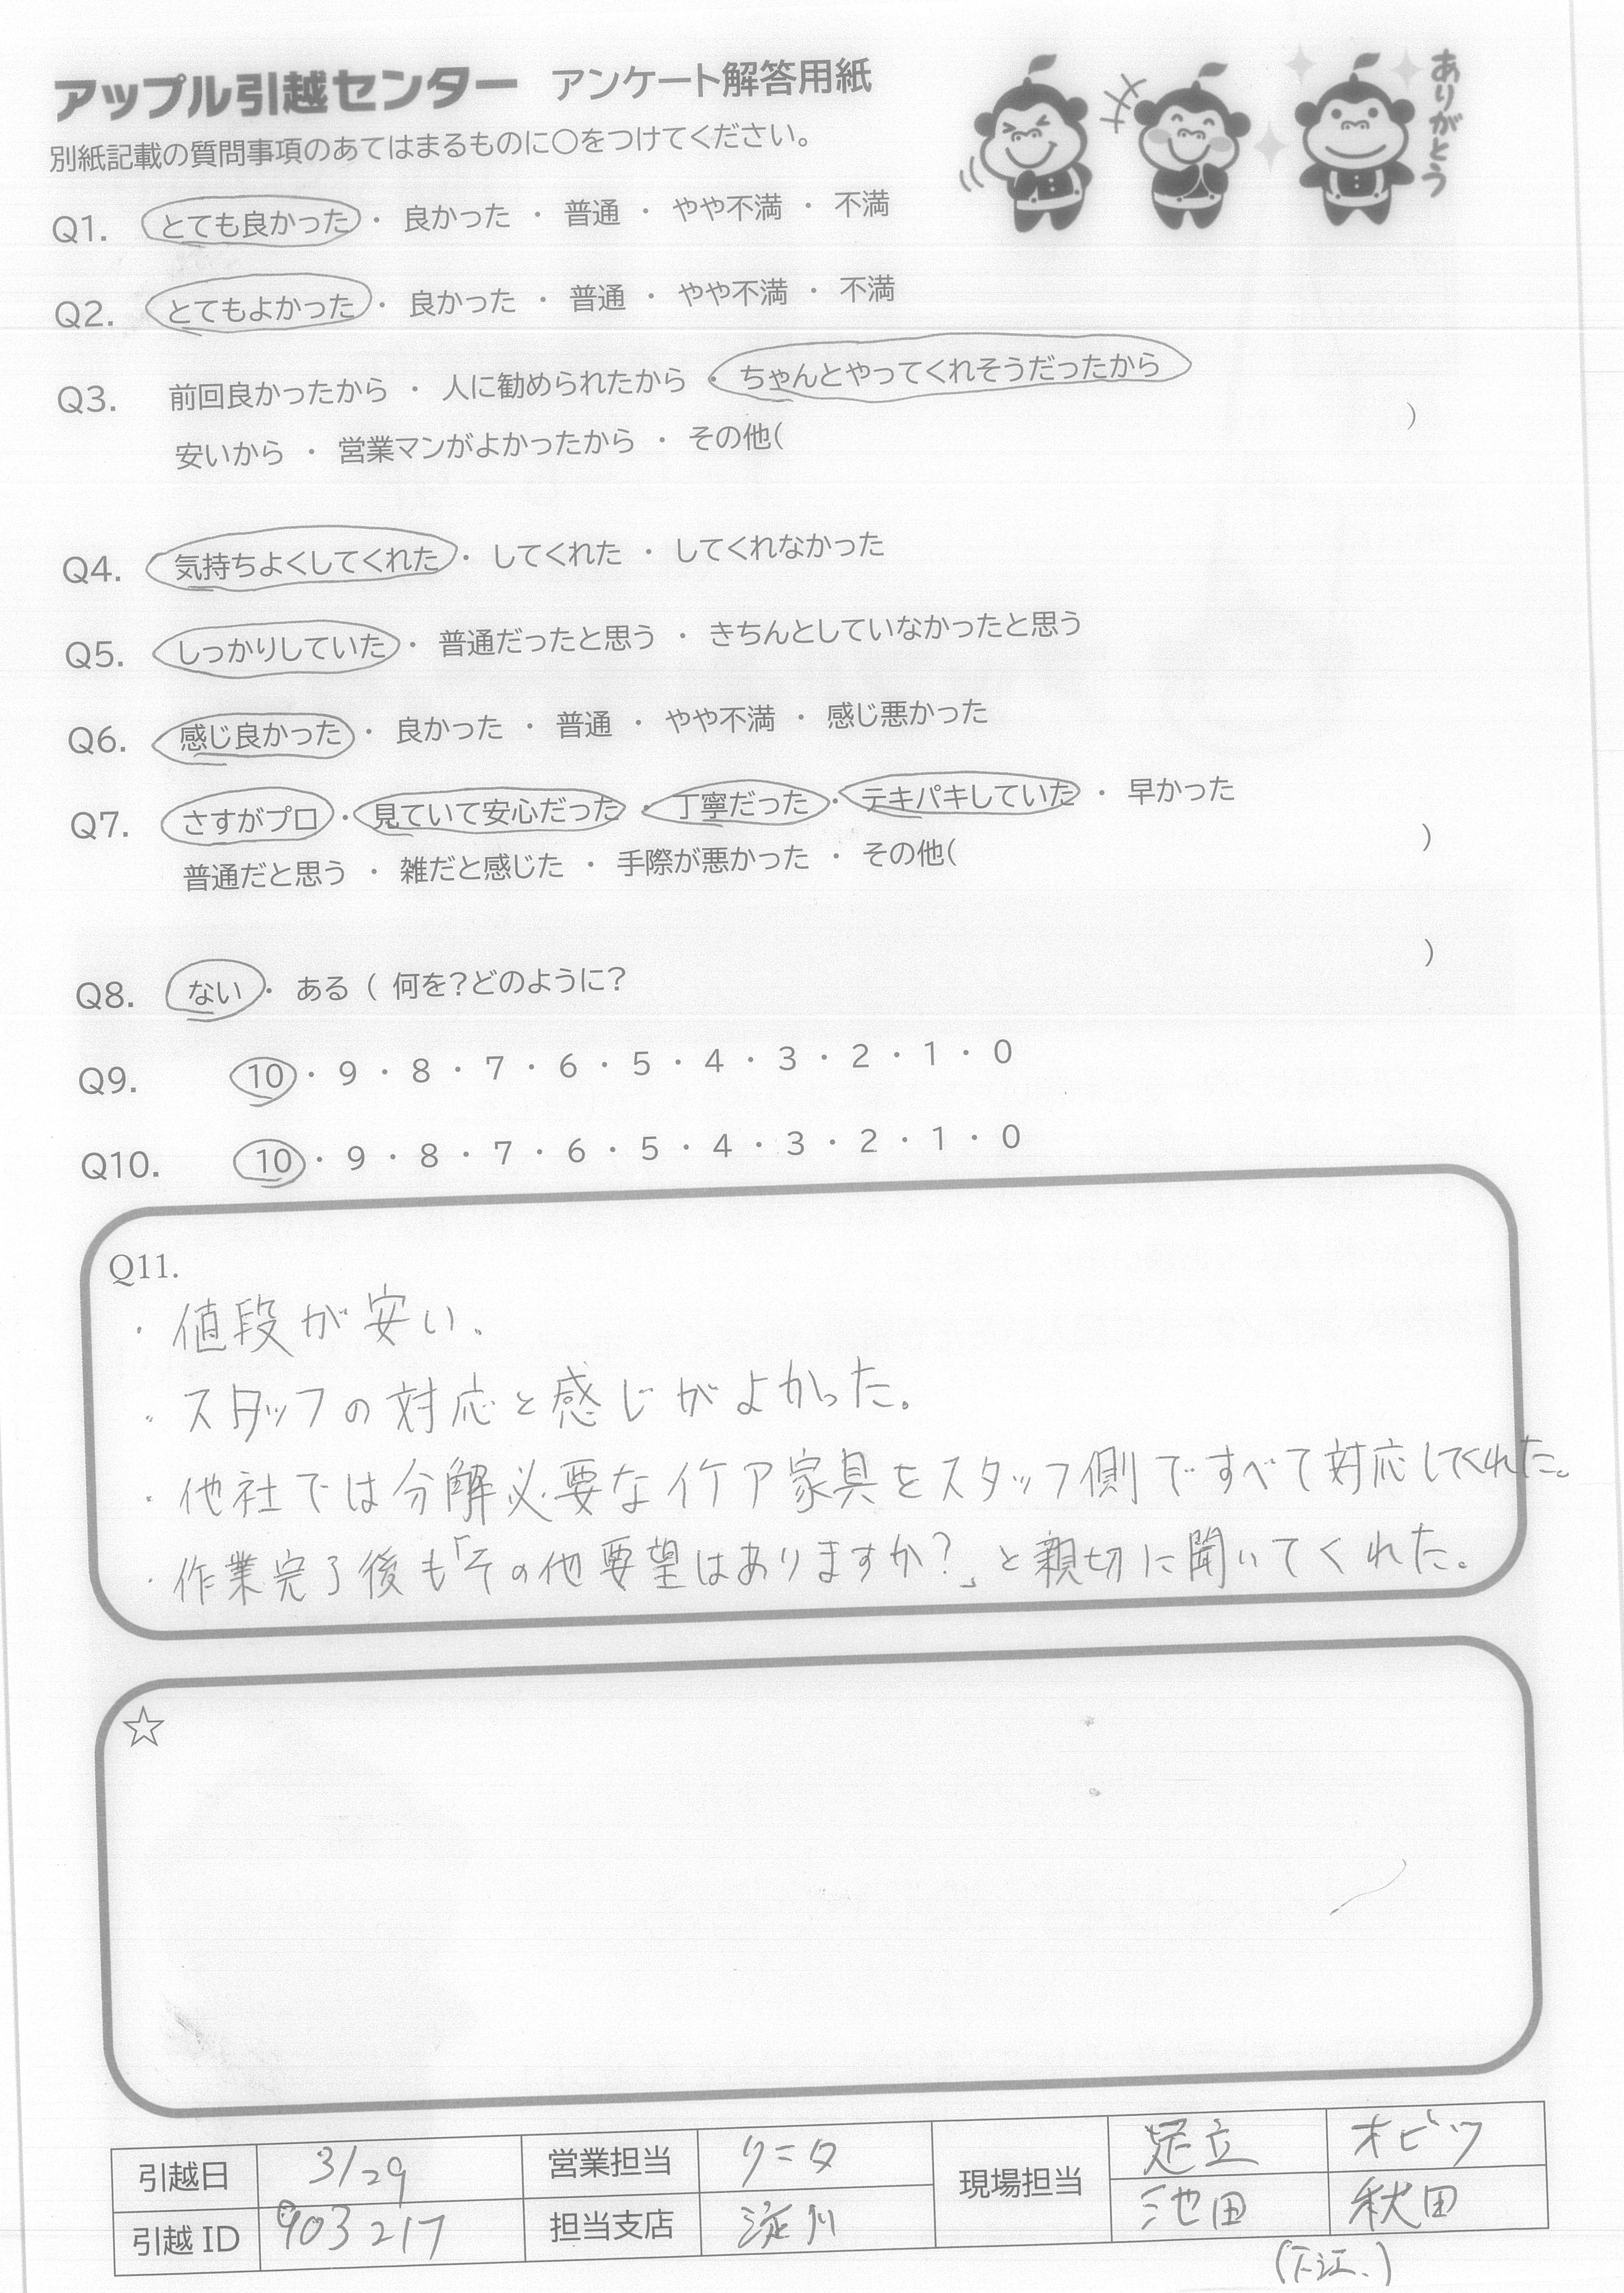 アップル引越センター アンケート解答用紙
ありがとう
別紙記載の質問事項のあてはまるものに○をつけてください。
Q1. とても良かった ・ 良かった ・ 普通 ・ やや不満 ・ 不満
Q2. とてもよかった ・ 良かった ・ 普通 ・ やや不満 ・ 不満
Q3. 前回良かったから ・ 人に勧められたから ・ ちゃんとやってくれそうだったから
安いから ・ 営業マンがよかったから ・ その他( )
Q4. 気持ちよくしてくれた ・ してくれた ・ してくれなかった
Q5. しっかりしていた ・ 普通だったと思う ・ きちんとしていなかったと思う
Q6. 感じ良かった ・ 良かった ・ 普通 ・ やや不満 ・ 感じ悪かった
Q7. さすがプロ ・ 見ていて安心だった ・ 丁寧だった ・ テキパキしていた ・ 早かった
普通だと思う ・ 雑だと感じた ・ 手際が悪かった ・ その他( )
Q8. ない ・ ある ( 何を?どのように? )
Q9. 10 ・ 9 ・ 8 ・ 7 ・ 6 ・ 5 ・ 4 ・ 3 ・ 2 ・ 1 ・ 0
Q10. 10 ・ 9 ・ 8 ・ 7 ・ 6 ・ 5 ・ 4 ・ 3 ・ 2 ・ 1 ・ 0
Q11.
・値段が安い。
・スタッフの対応と感じがよかった。
・他社では分解必要なイケア家具をスタッフ側ですべて対応してくれた。
・作業完了後も「その他要望はありますか?」と親切に聞いてくれた。
☆
引越日 3/29 営業担当 クニタ 現場担当 足立 オビツ
引越ID 903217 担当支店 淀川 池田 秋田
(下江)